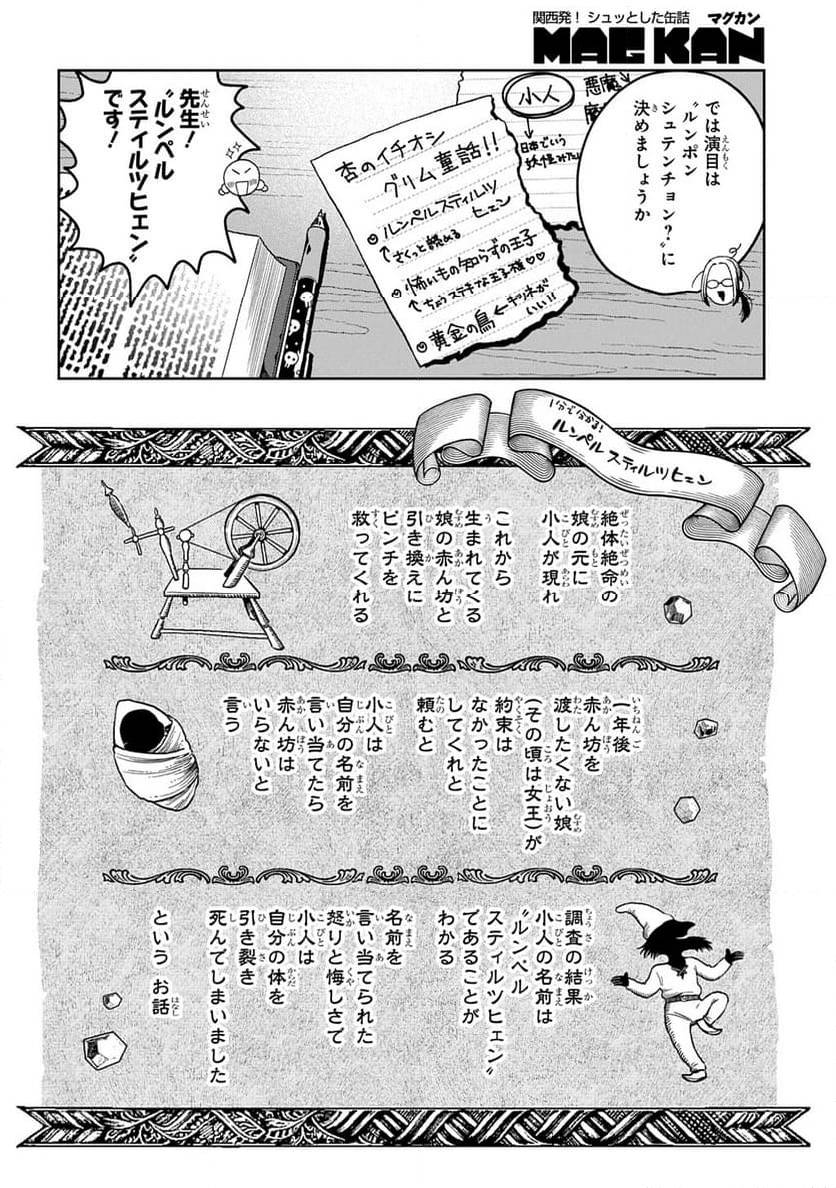 関西発! シュッとした缶詰 マグカン
MAG KAN
では演目は
〝ルンポン
シュテンチョン?〟に
決めましょうか
悪魔
小人
日本でいう
妖怪みたい
杏のイチオシ
グリム童話!!
・ルンペルスティルツ
ヒェン
さくっと読める
・怖いもの知らずの王子
ちょうステキな王子様♡♡
・黄金の鳥←キツネが
いい!!
先生!
〝ルンペル
スティルツヒェン〟
です!
1分で分かる!
ルンペルスティルツヒェン
絶体絶命の
娘の元に
小人が現れ
これから
生まれてくる
娘の赤ん坊と
引き換えに
ピンチを
救ってくれる
一年後
赤ん坊を
渡したくない娘
(その頃は女王)が
約束は
なかったことに
してくれと
頼むと
小人は
自分の名前を
言い当てたら
赤ん坊は
いらないと
言う
調査の結果
小人の名前は
〝ルンペル
スティルツヒェン〟
であることが
わかる
名前を
言い当てられた
怒りと悔しさで
小人は
自分の体を
引き裂き
死んでしまいました
という お話